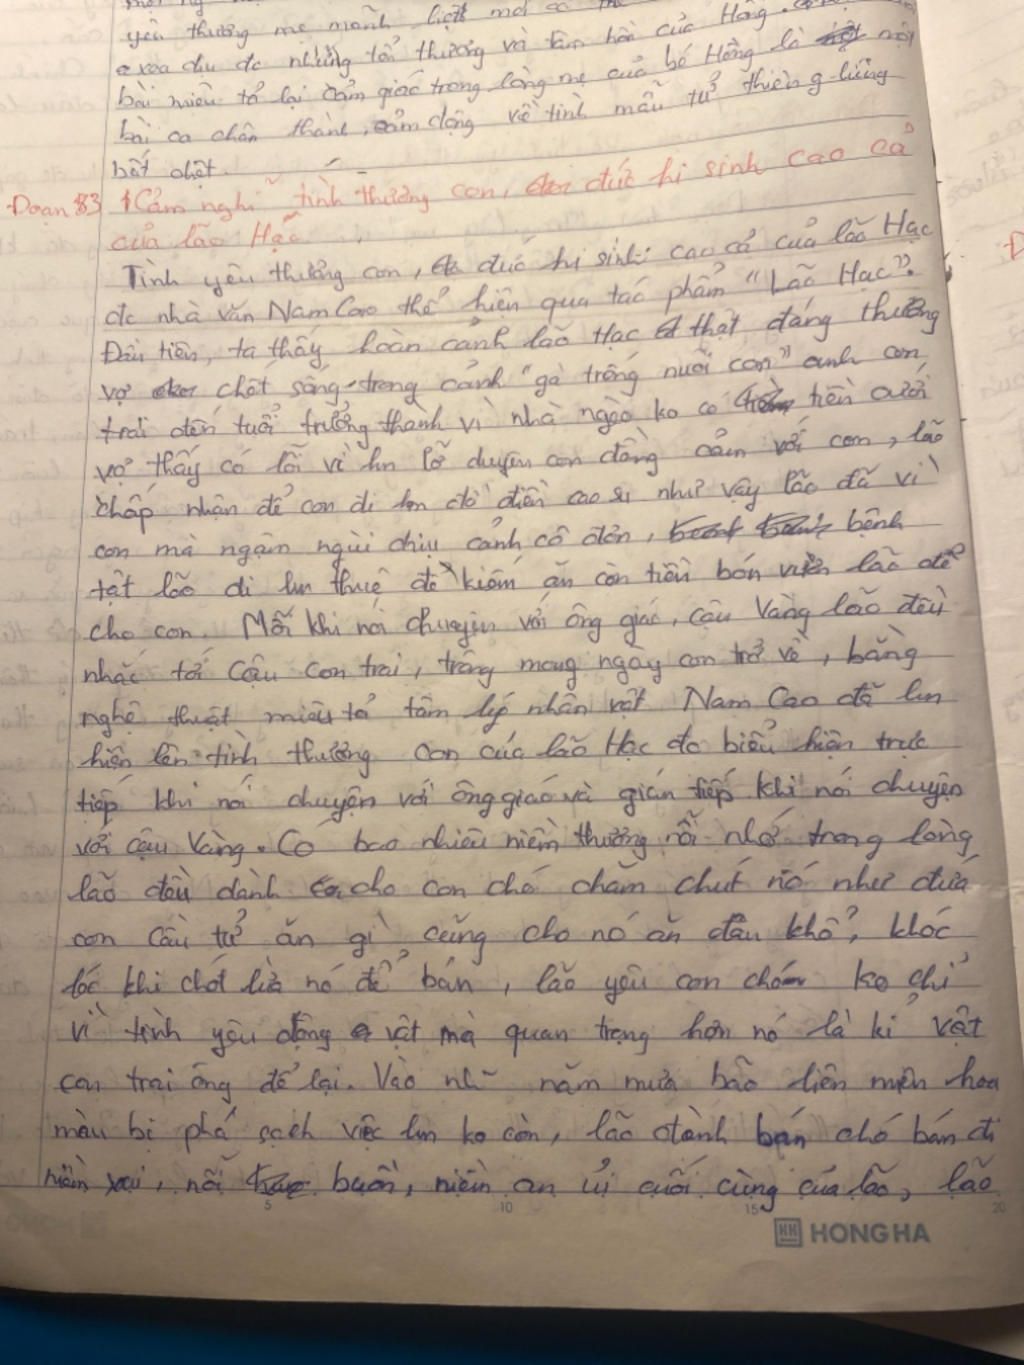 yêu thương mẹ mãnh liệt mới có thể
xoa dịu đc những tổn thương và tâm hồn của Hồng.
bài miêu tả lại cảm giác trong lòng mẹ của bé Hồng là một
bài ca chân thành, cảm động về tình mẫu tử thiêng liêng
bất diệt.
Đoạn 3 Cảm nghĩ tình thương con, đức hi sinh cao cả
của lão Hạc
Tình yêu thương con, đức hi sinh cao cả của lão Hạc
đc nhà văn Nam Cao thể hiện qua tác phẩm "Lão Hạc".
Đầu tiên, ta thấy hoàn cảnh lão Hạc thật đáng thương
vợ chết sống trong cảnh "gà trống nuôi con" anh con
trai đến tuổi trưởng thành vì nhà ngèo ko có tiền cưới
vợ thấy có lỗi vì lm lỡ duyên con đồng cảm với con, lão
chấp nhận để con đi đồn điền cao su như vậy lão đã vì
con mà ngậm ngùi chịu cảnh cô đơn, bệnh
tật lão đi lm thuê để kiếm ăn còn tiền bán vườn lão để
cho con. Mỗi khi nói chuyện với ông giáo, cậu Vàng lão đều
nhắc tới cậu con trai, trông mong ngày con trở về, bằng
nghệ thuật miêu tả tâm lý nhân vật Nam Cao đã lm
hiện lên tình thương con của lão Hạc đc biểu hiện trực
tiếp khi nói chuyện với ông giáo và gián tiếp khi nói chuyện
với cậu Vàng. Có bao nhiêu niềm thương nỗi nhớ trong lòng
lão đều dành cho con chó chăm chút nó như đứa
con cầu tự ăn gì cũng cho nó ăn đau khổ, khóc
lóc khi chót lừa nó để bán, lão yêu con chó ko chỉ
vì tình yêu động vật mà quan trọng hơn nó là kỉ vật
con trai ông để lại. Vào nh~ năm mưa bão liên miên hoa
màu bị phá sạch việc lm ko còn, lão đành bán chó bán đi
niềm vui, nỗi buồn, niềm an ủi cuối cùng của lão, lão
5 10 15 20
HH HONG HA